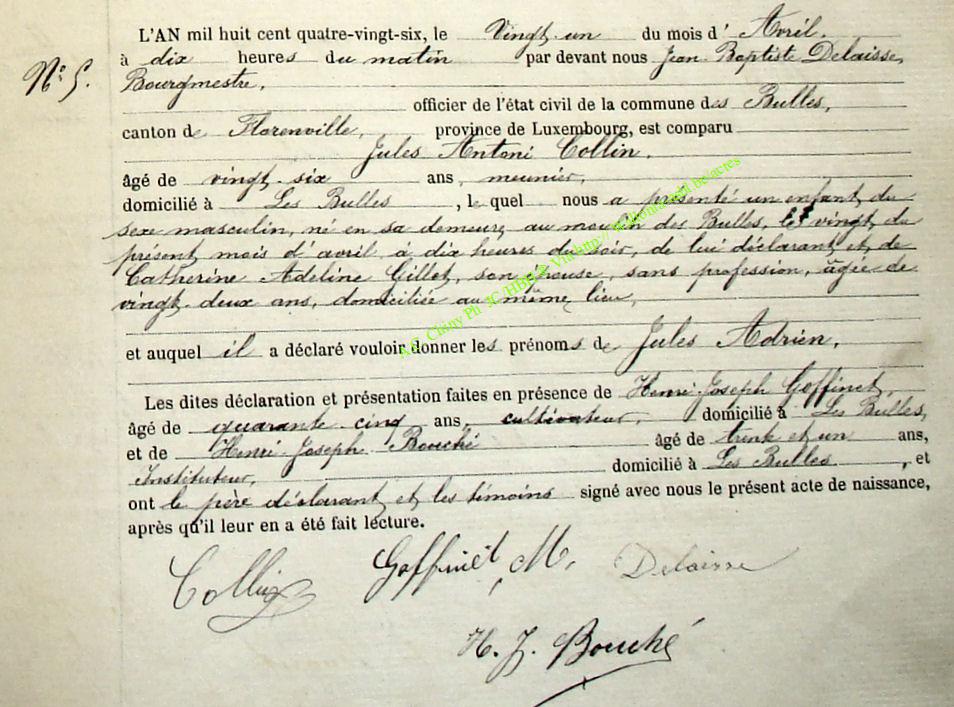 L'AN mil huit cent quatre-vingt-six, le Vingt-un du mois d' Avril.
à dix heures du matin par devant nous Jean Baptiste Delaisse,
N° 5.
Bourgmestre,
officier de l'état civil de la commune des Bulles,
canton de Florenville, province de Luxembourg, est comparu
Jules Antoni Collin.
âgé de vingt-six ans, meunier,
domicilié à Les Bulles, le quel nous a présenté un enfant du
sexe masculin, né en sa demeure, au moulin des Bulles, le vingt du
présent mois d'avril à dix heures du soir, de lui déclarant et de
Catherine Adeline Gillet, son épouse, sans profession, âgée de
vingt-deux ans, domiciliée au même lieu,
et auquel il a déclaré vouloir donner les prénoms de Jules Adrien,
Les dites déclaration et présentation faites en présence de Henri Joseph Goffinet
âgé de quarante-cinq ans, cultivateur, domicilié à Les Bulles,
et de Henri-Joseph Bouché âgé de trente et un ans,
Instituteur, domicilié à Les Bulles, et
ont le père déclarant et les témoins signé avec nous le présent acte de naissance,
après qu'il leur en a été fait lecture.
Collin Goffinet, M. Delaisse
H. J. Bouché